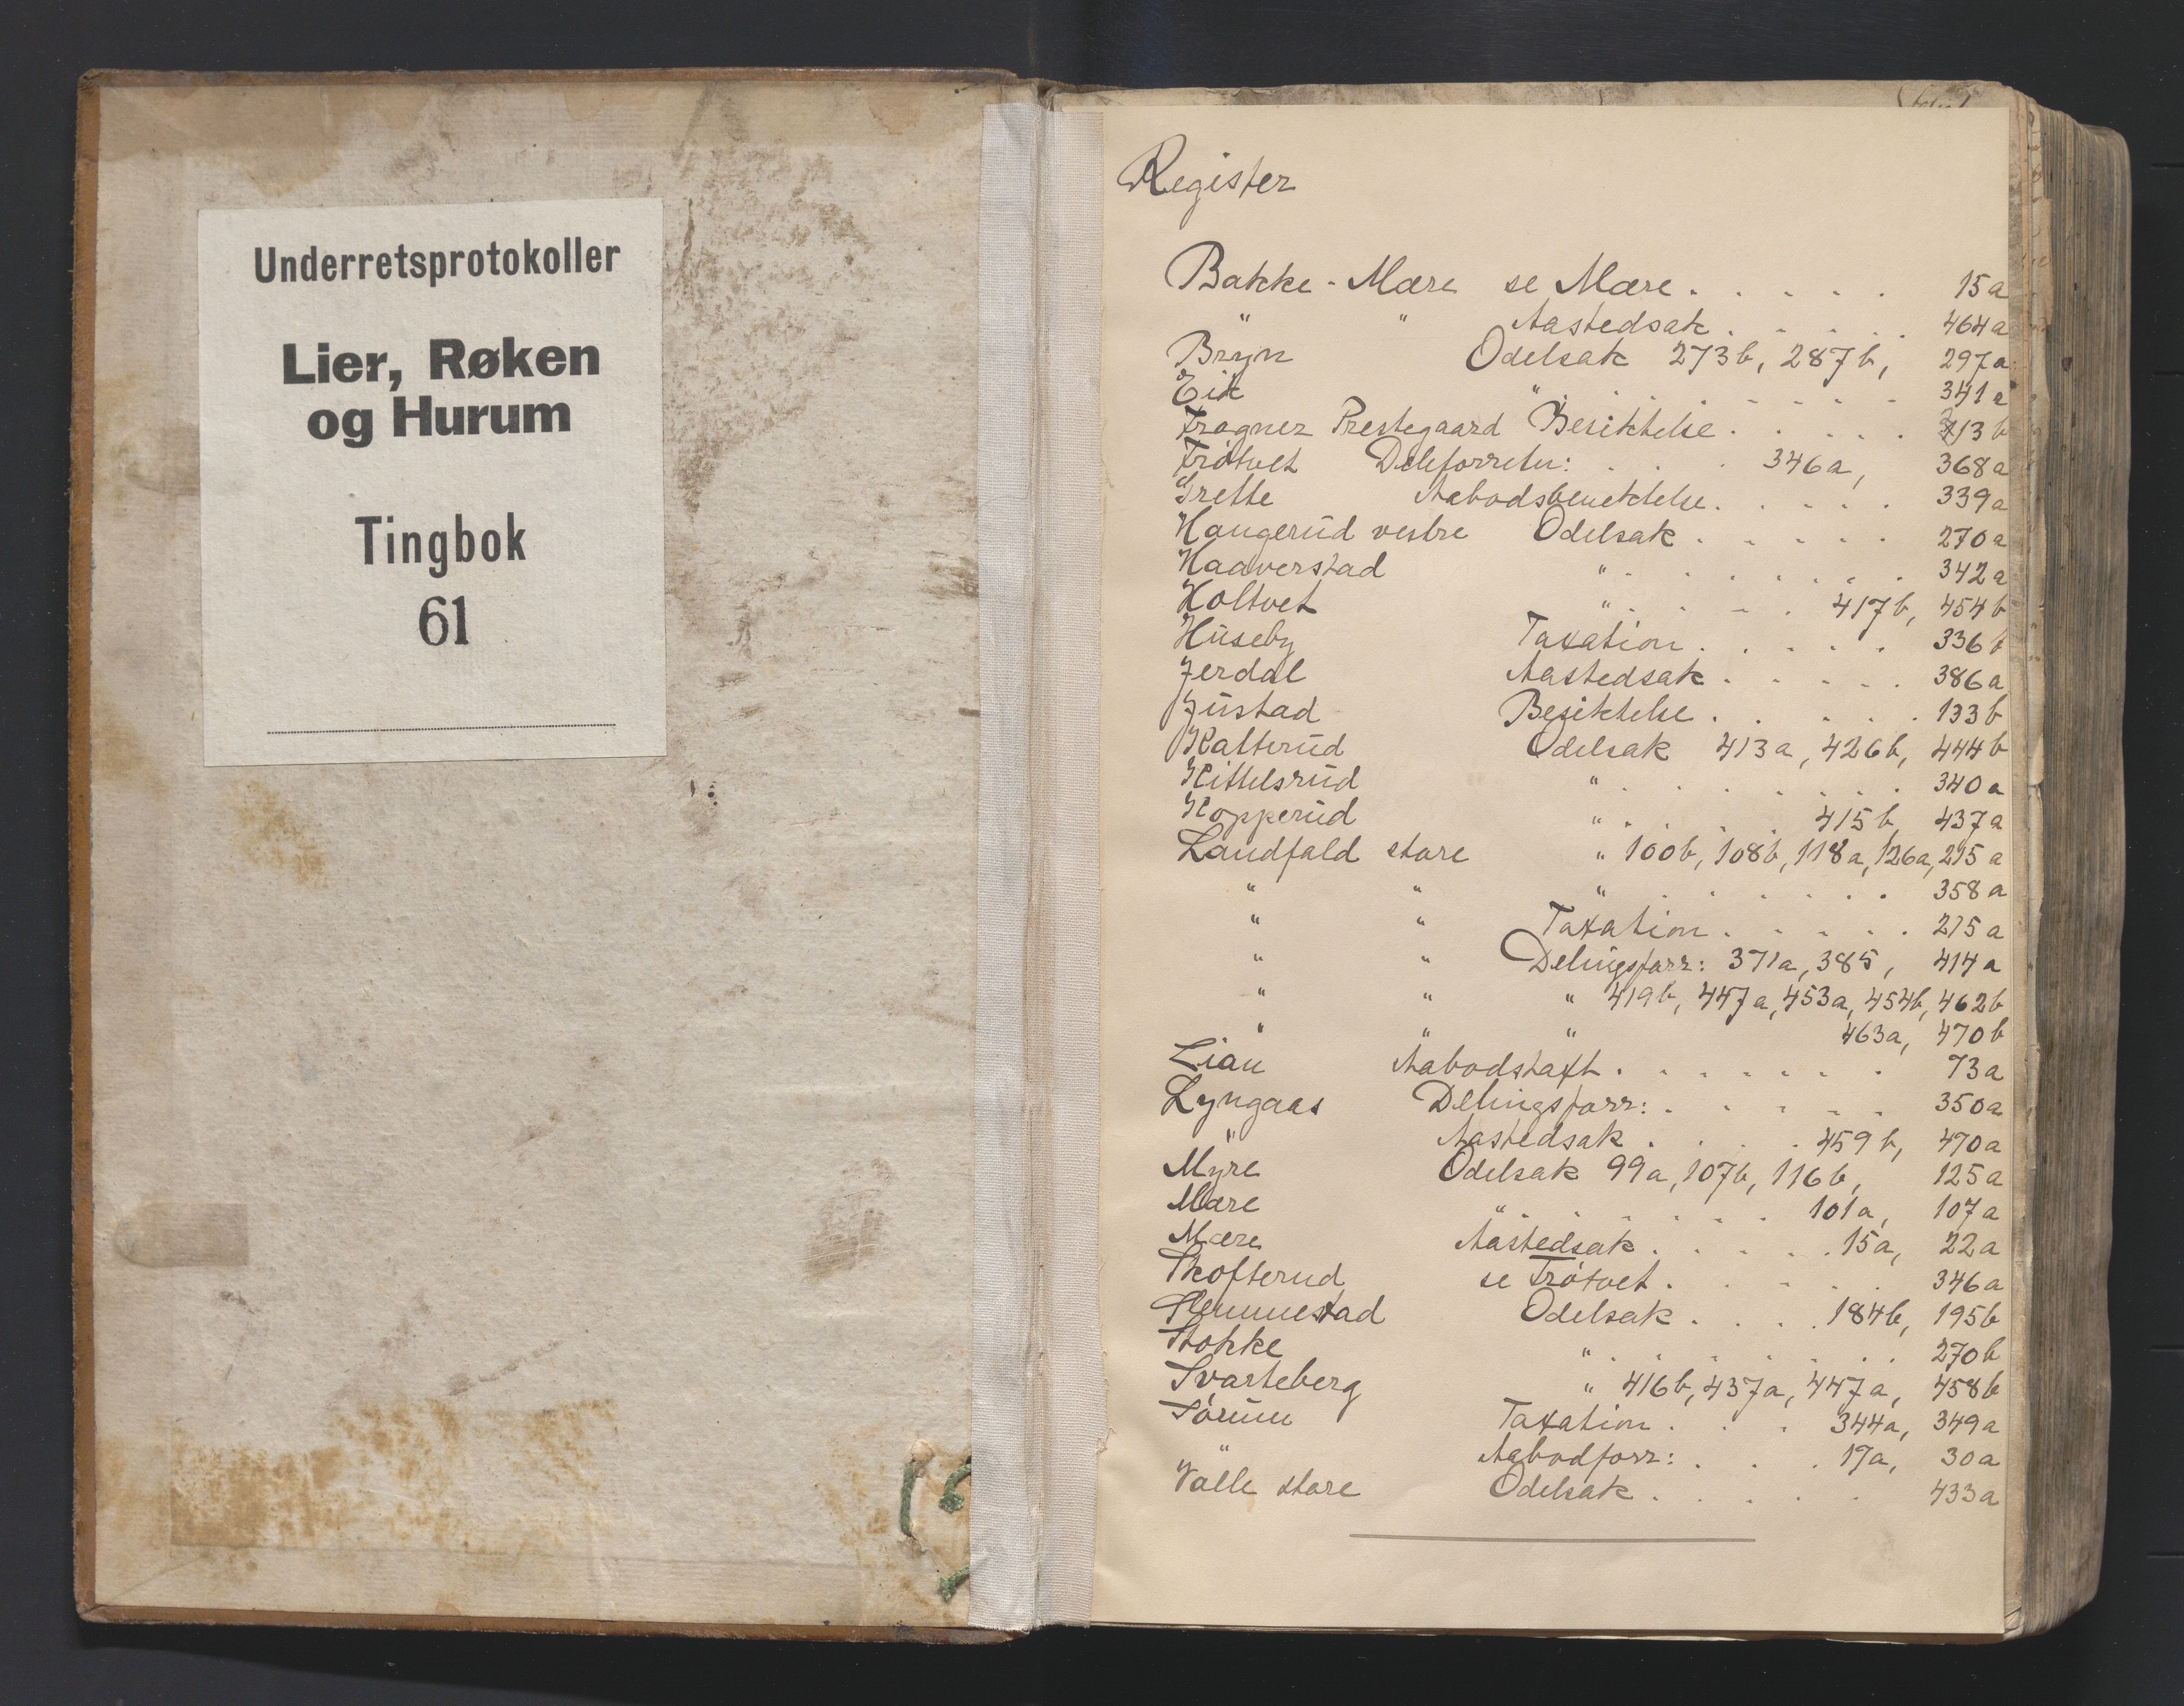 Underretsprotokoller
Lier, Røken
og Hurum
Tingbok
61
Register
Bakke-Mære se Mære . . . . . 15a
" " Aastedsak . . . . . 464a
Bryn Odelsak 273b, 287b, 297a
Eik " . . . . . . . 341a
Frogner Prestegaard Besiktelse . . . . . 313b
Frøtvet Deleforretn: . . . 346a, 368a
Grette Aabodsbesiktelse . . . . . 339a
Haugerud vestre Odelsak . . . . . 270a
Haaverstad " . . . . . . . 342a
Holtvet " . . . . 417b, 454b
Huseby Taxation . . . . . 336b
Jerdal Aastedsak . . . . . 386a
Justad Besiktelse . . . . . 133b
Kalterud Odelsak 413a, 426b, 444b
Kittelsrud " . . . . . . . 340a
Kopperud " . . . . 415b, 437a
Landfald store " 100b, 108b, 118a, 126a, 215a
" " " . . . . . . . 358a
" " Taxation . . . . . 215a
" " Delingsforr: 371a, 385, 414a
" " " 419b, 447a, 453a, 454b, 462b
" " " 463a, 470b
Lian Aabodstaxt . . . . . . . 73a
Lyngaas Delingsforr: . . . . . 350a
" Aastedsak . . . . 459b, 470a
Myre Odelsak 99a, 107b, 116b, 125a
Mære " . . . . . . 101a, 107a
Mære Aastedsak . . . . . 15a, 22a
Skofterud se Frøtvet . . . . . 346a
Slemmestad Odelsak . . . . 184b, 195b
Stokke " . . . . . . . 270b
Svarteberg " 416b, 437a, 447a, 458b
Sørum Taxation . . . 344a, 349a
" Aabodforr: . . . 17a, 30a
Valle store Odelsak . . . . . 433a